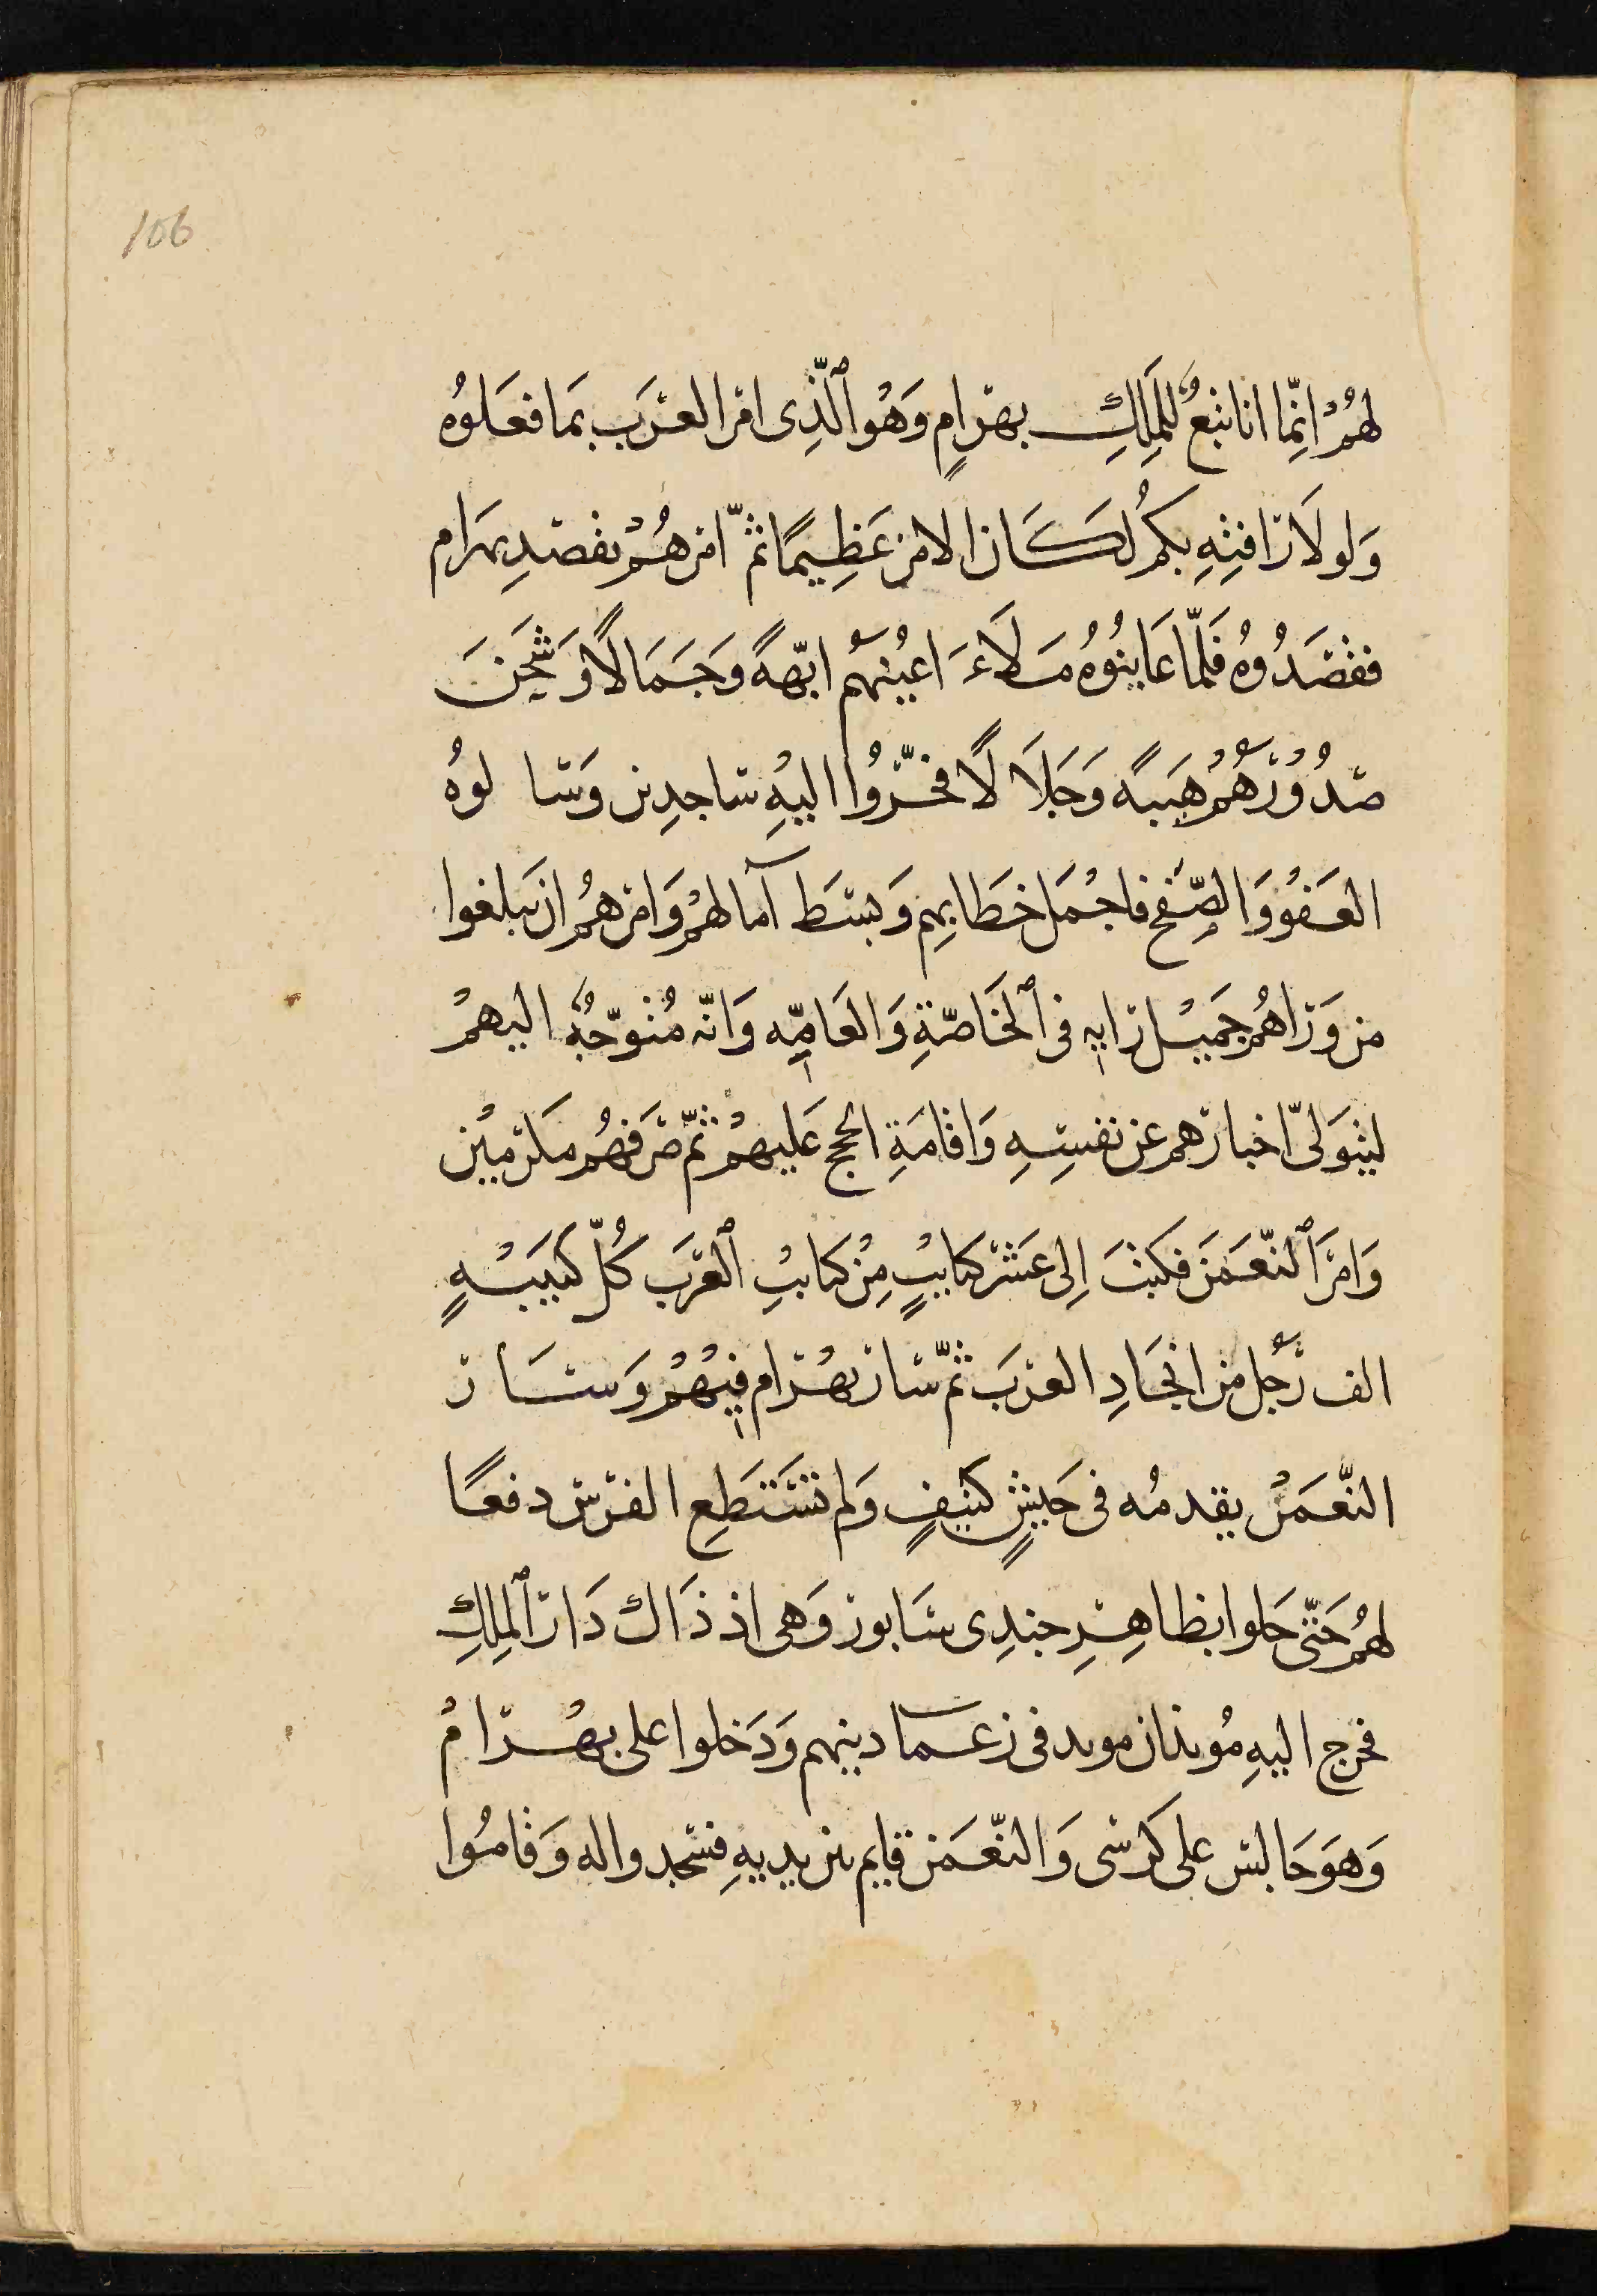 106
لهُمْ اِنّما انا تبعٌ للمَلِكِ بهرامٍ وَهُو ٱلّذِى امر العرَب بمَا فعَلوُه
وَلو لَا رَافتِهِ بكم لَكَان الامر عَظِيمًا ثمّ امرهُمْ بقصْدِ بهرَام
فقصَدُوُه فَلمّا عَاينُوُه مَلَاءَ اعيُنهُم ابّهةً وَجَمَالًا وَشحَنَ
صُدُوْرَهُمْ هَيبةً وَجَلَا لًا فخَرّوُا اليهِ ساجدِين وَسَا لوُه
العَفْوُ وَالصّفح فاجْمَل خطَابهم وَبسَط آمالهُمْ وَامرهُم ان يَبلغوا
من وَرَاهُم جَميْل رَايه فى ٱلخَاصّةِ وَالعَامّه وَانّه مُتوجّهٌ اليهمْ
ليتوَلىّ اخبارهم عن نفسِهِ وَاقامَةِ الحجج عَليهمْ ثمّ صَرفهُم مكرميْن
وَامَرَ ٱلنّعمَن فكتبَ اِلى عَشر كتايبٍ مِنْ كتايبِ ٱلعرَب كُلّ كتيبَةٍ
الف رَجُل من انجَادِ العرَب ثمّ سَار بهْرَام فيْهُمْ وَسَار
النّعمَنُ يقدمُه فى جَيشٍ كثيفٍ وَلم تسْتَطِعِ الفرُس دفعًا
لهُمْ حَتّى حَلوا بظاهِرِ جندِى سَابور وَهى اذ ذَاك دَار ٱلمِلكِ
فخرج اليهِ مُوبذان موبد فى زعمآ دينهم وَدَخلوا على بهْرَامُ
وَهوَ جَالس على كرسى وَالنّعمَن قايم بين يديهِ فسَجدوا له وَقامُوا